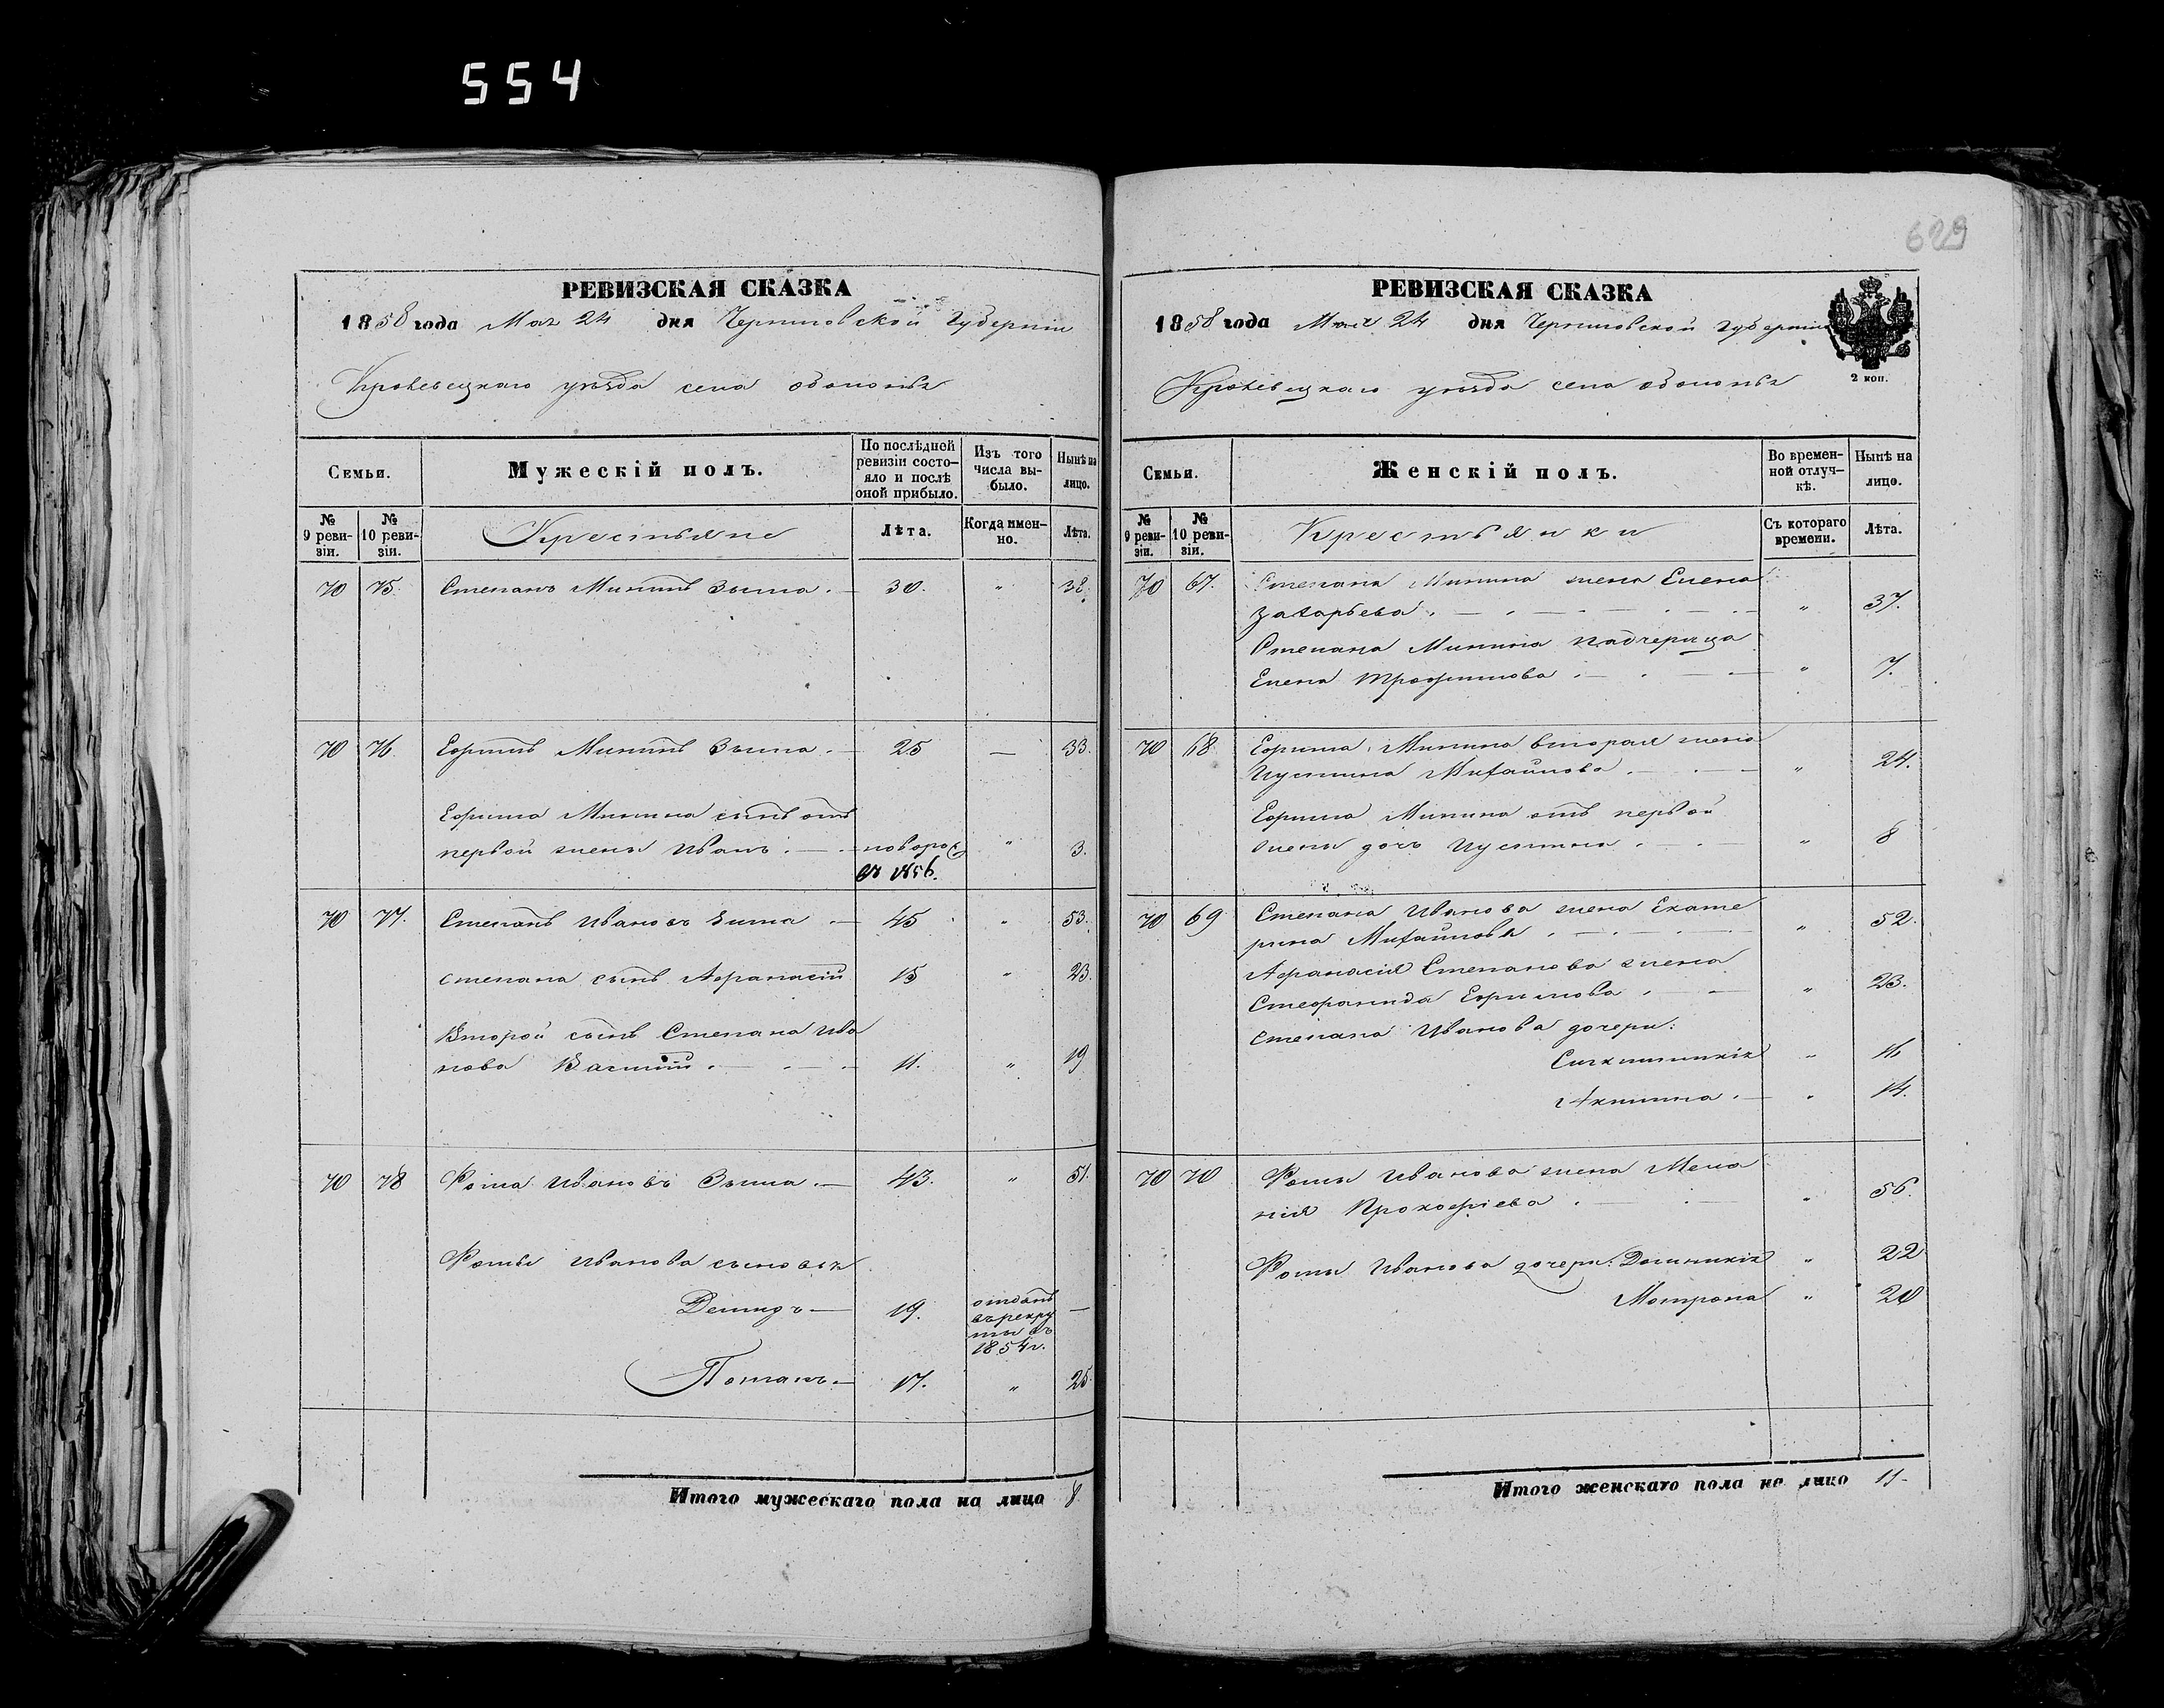 554
629
РЕВИЗСКАЯ СКАЗКА
1858 года Мая 24 дня Черниговской Губерніи
Кролевецкаго уѣзда села Оболонья
Семьи.
Мужескій полъ.
По послѣдней ревизіи состо-
яло и послѣ
оной прибыло.
Изъ того
числа вы-
было.
Нынѣ на
лицо.
№
9 реви-
зіи.
№
10 реви-
зіи.
Крестьяне
Лѣта.
Когда имен-
но.
Лѣта.
70 75. Степанъ Мининъ Зима. — 30. " 38.
70 76. Ефимъ Мининъ Зима. — 25 — 33.
Ефима Минина сынъ отъ
первой жены Иванъ. — новорож " 3.
въ 1856.
70 77. Степанъ Ивановъ Зима — 45 " 53.
Степана сынъ Афанасій 15 " 23.
Второй сынъ Степана Ива
нова Василій. — 11. " 19
70 78 Фома Ивановъ Зима. — 43. " 51.
Фомы Иванова сыновья
Демидъ — 19. отданъ
въ рекру
ты въ
1854 г. —
Потапъ. — 17. " 25.
Итого мужескаго пола на лицо 8.
РЕВИЗСКАЯ СКАЗКА
1858 года Мая 24 дня Черниговской губерніи
2 коп.
Кролевецкаго уѣзда села Оболонья
Семьи.
Женскій полъ.
Во времен-
ной отлуч-
кѣ.
Нынѣ на
лицо.
№
9 реви-
зіи.
№
10 реви-
зіи.
Крестьянки
Съ котораго
времени.
Лѣта.
70 67. Степана Минина жена Елена
Захарьева. — " 37.
Степана Минина падчерица
Елена Трофимова. — " 7.
70 68. Ефима Минина вторая жена
Иустина Михайлова. — " 24.
Ефима Минина отъ первой
жены дочь Иустина. — " 8
70 69 Степана Иванова жена Екате
рина Михайлова. — " 52.
Афанасія Степанова жена
Стефанида Ефимова. — " 23.
Степана Иванова дочери:
Синклитикія " 16
Акилина. — " 14.
70 70 Фомы Иванова жена Мела
нія Прокофіева. — " 56.
Фомы Иванова дочери: Доминикія " 22
Мотрона " 20
Итого женскаго пола на лицо 11-